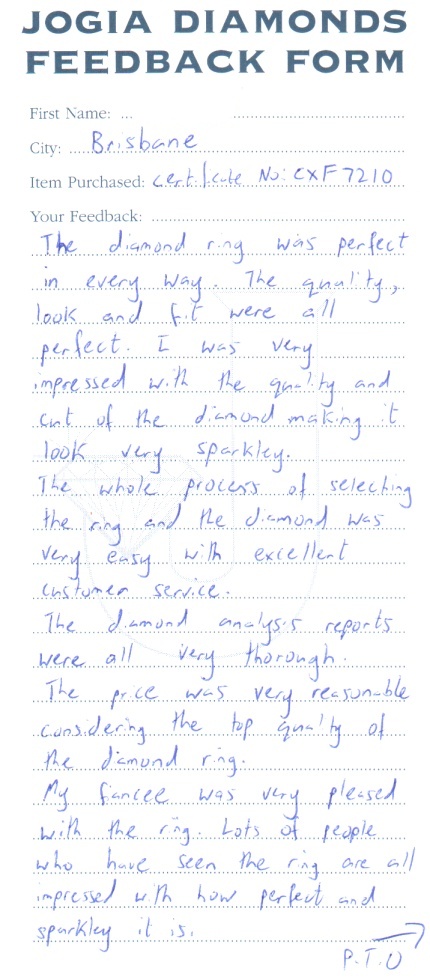 JOGIA DIAMONDS
FEEDBACK FORM
First Name: ...
City: Brisbane
Item Purchased: certificate No: CXF7210
Your Feedback:
The diamond ring was perfect
in every way. The quality,
look and fit were all
perfect. I was very
impressed with the quality and
cut of the diamond making it
look very sparkley.
The whole process of selecting
the ring and the diamond was
very easy with excellent
customer service.
The diamond analysis reports
were all very thorough.
The price was very reasonable
considering the top quality of
the diamond ring.
My fiancee was very pleased
with the ring. Lots of people
who have seen the ring are all
impressed with how perfect and
sparkley it is.
P.T.O